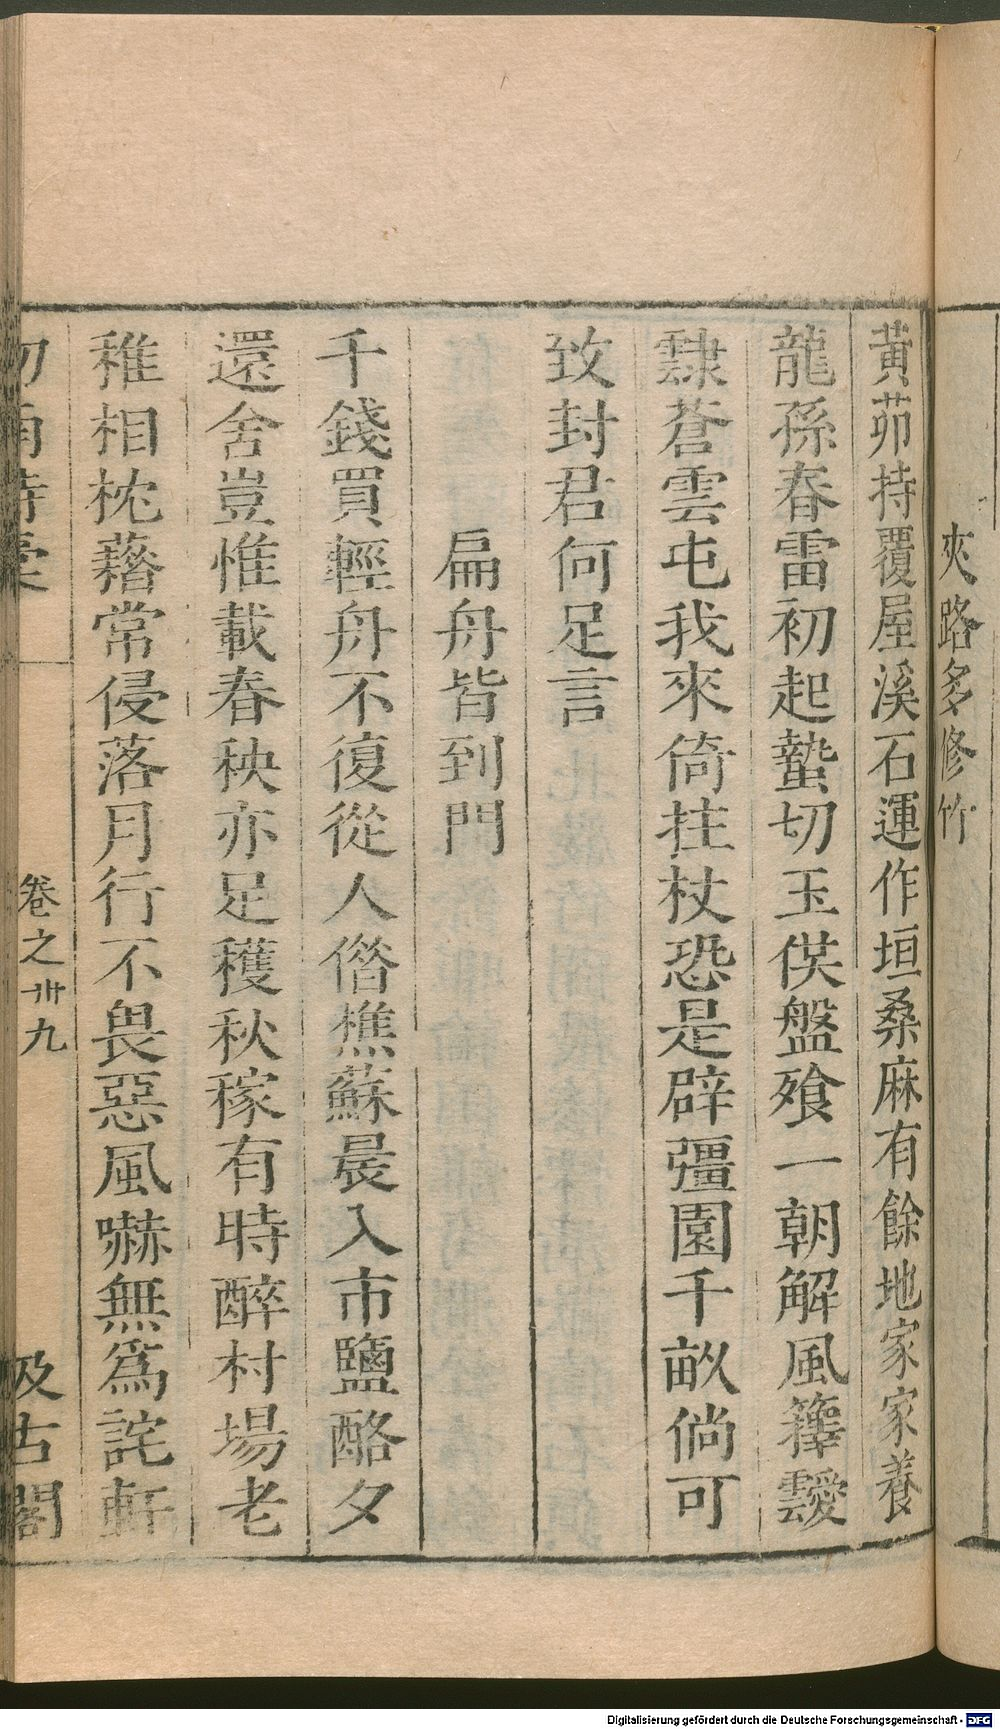 夾路多修竹
黃茆持覆屋溪石運作垣桑麻有餘地家家養
龍孫春雷初起蟄切玉供盤飱一朝解風籜靉
霴蒼雲屯我來倚拄杖恐是辟彊園千畝倘可
致封君何足言
扁舟皆到門
千錢買輕舟不復從人偺樵蘇晨入市鹽酪夕
還舍豈惟載春秧亦足穫秋稼有時醉村場老
稚相枕藉常侵落月行不畏惡風嚇無爲詫軒
卷之卅九
汲古閣
Digitalisierung gefördert durch die Deutsche Forschungsgemeinschaft - DFG